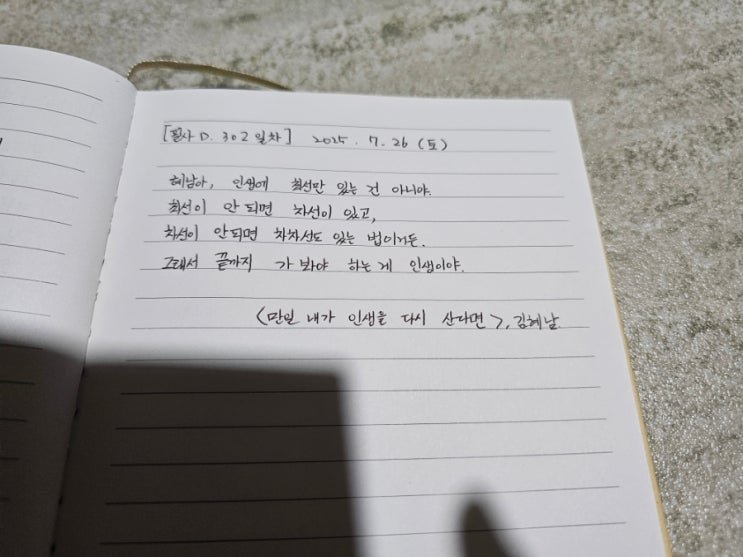 [필사 D. 302일차] 2025. 7. 26 (토)
혜남아, 인생에 최선만 있는 건 아니야.
최선이 안 되면 차선이 있고,
차선이 안되면 차차선도 있는 법이거든.
그래서 끝까지 가 봐야 하는 게 인생이야.
<만일 내가 인생을 다시 산다면>, 김혜남.